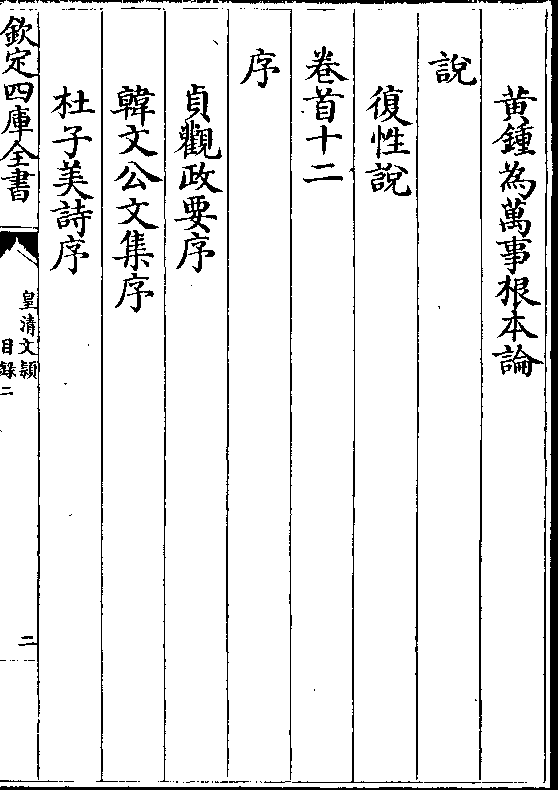 黄鍾為萬事根本論
說
復性說
卷首十二
序
貞觀政要序
韓文公文集序
杜子美詩序
欽定四庫全書
皇清文穎
目録二
二